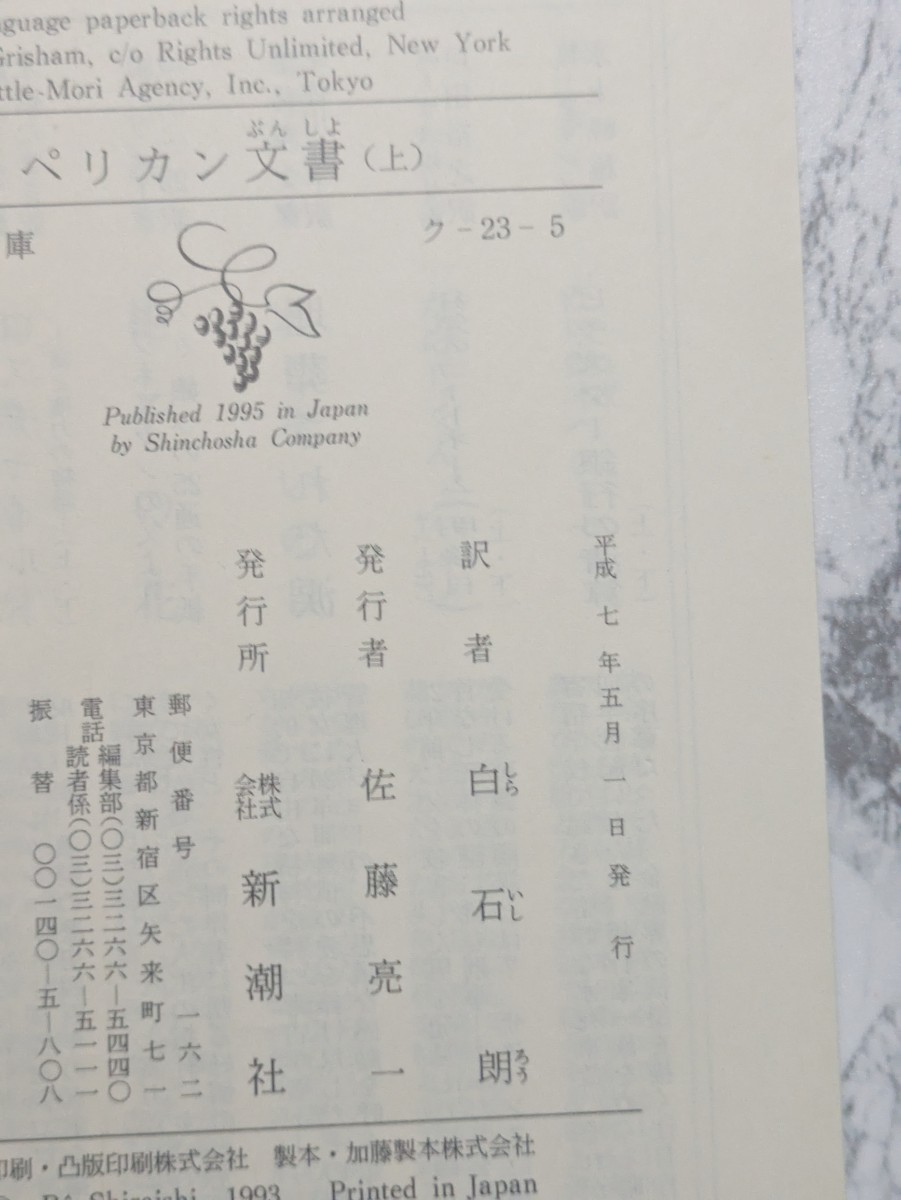 nguage paperback rights arranged
Grisham, c/o Rights Unlimited, New York
ttle-Mori Agency, Inc., Tokyo
ぶんしよ
ペリカン文書(上)
庫
ク-23-5
Published 1995 in Japan
by Shinchosha Company
平成七年五月一日発行
訳者 白石朗
しらいしろう
発行者 佐藤亮一
発行所 株式会社 新潮社
郵便番号 一六二
東京都新宿区矢来町七一
電話 編集部(〇三)三二六六―五四四〇
読者係(〇三)三二六六―五一一一
振替 〇〇一四〇―五―八〇八
印刷・凸版印刷株式会社 製本・加藤製本株式会社
Shiraishi 1993 Printed in Japan